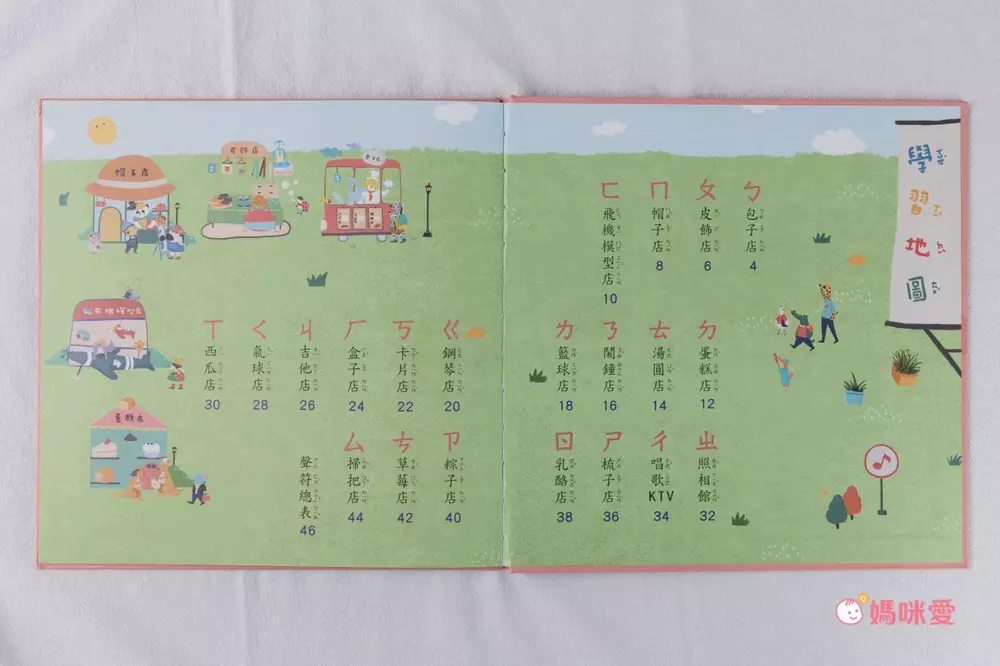 學習地圖
ㄅ 包子店 4
ㄆ 皮飾店 6
ㄇ 帽子店 8
ㄈ 飛機模型店 10
ㄉ 蛋糕店 12
ㄊ 湯圓店 14
ㄋ 鬧鐘店 16
ㄌ 籃球店 18
ㄍ 鋼琴店 20
ㄎ 卡片店 22
ㄏ 盒子店 24
ㄐ 吉他店 26
ㄑ 氣球店 28
ㄒ 西瓜店 30
ㄓ 照相館 32
ㄔ 唱歌KTV 34
ㄕ 梳子店 36
ㄖ 乳酪店 38
ㄗ 粽子店 40
ㄘ 草莓店 42
ㄙ 掃把店 44
聲符總表 46
帽子店
皮飾店
飛機模型店
蛋糕店
媽咪愛